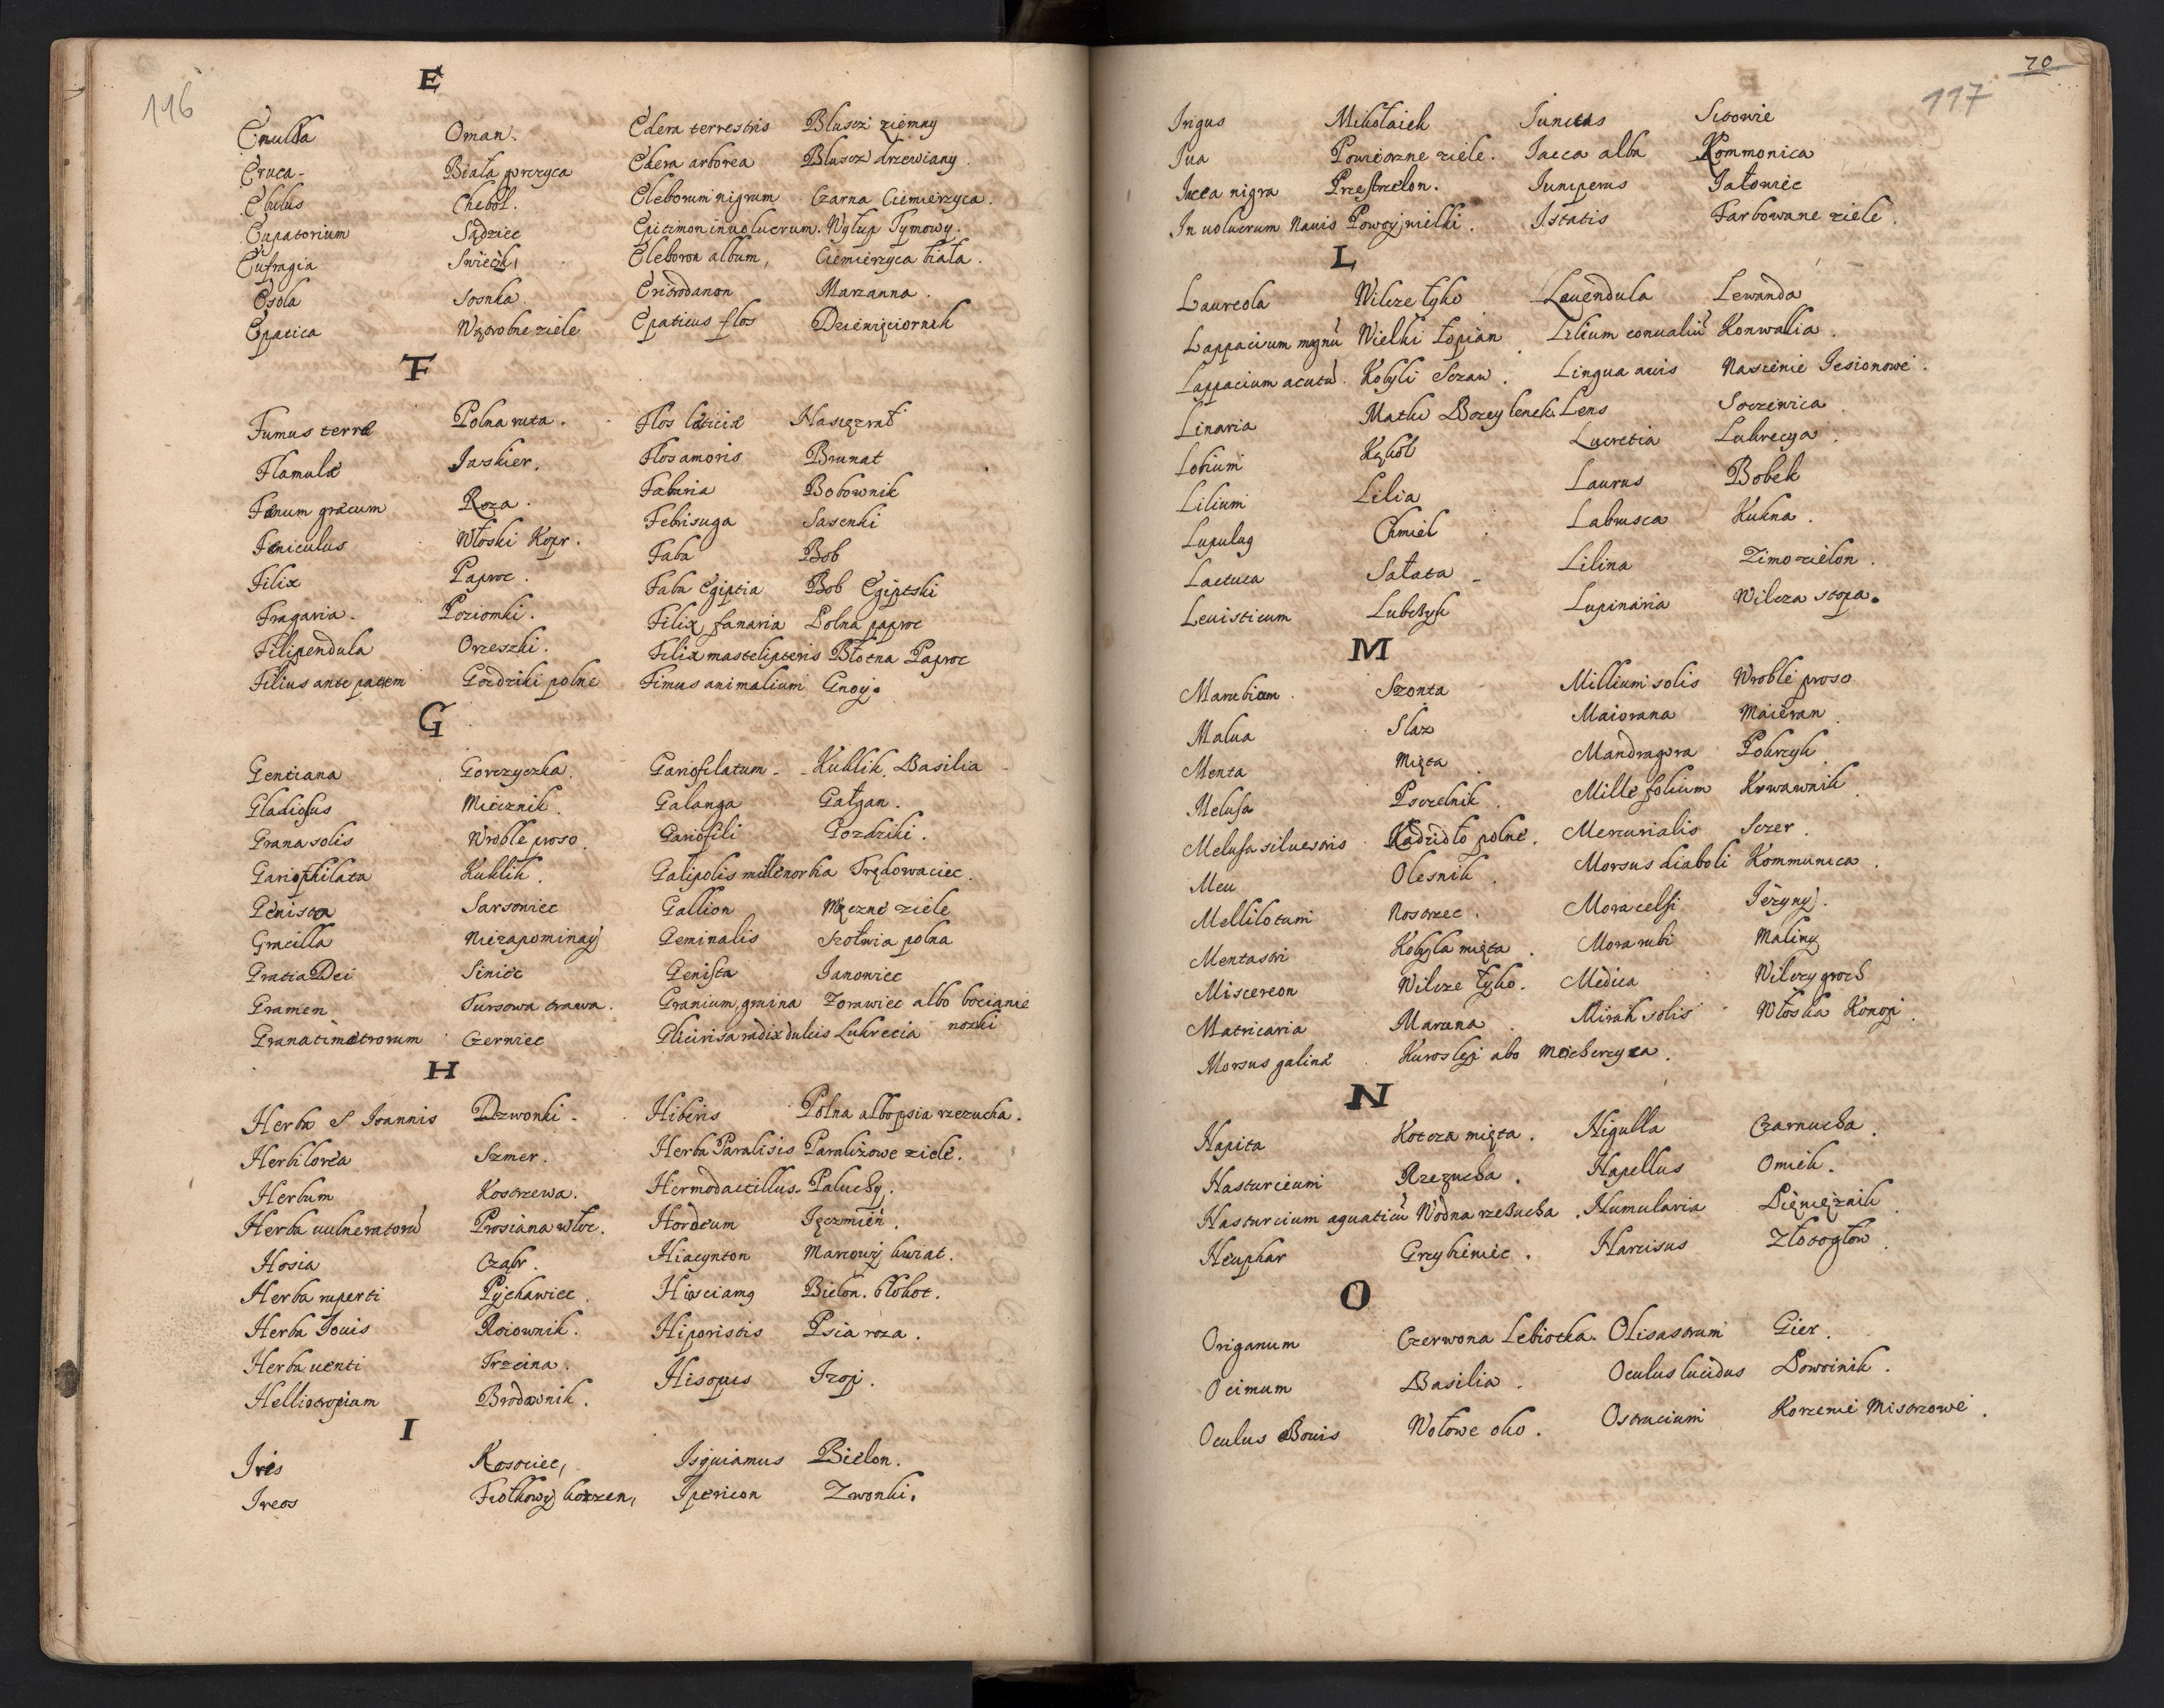 116
E
Enulla Oman. Edera terrestris Bluscz ziemny
Eruca Biała gorczyca Edera arborea Bluscz drzewiany.
Ebulus Chebd. Eleborum nigrum Czarna Ciemierzyca.
Eupatorium Sądziec Epitimon inuolucrum. Wyłup Tymowy.
Eufragia Swiecik, Eleborom album, Ciemierzyca biała.
Esola Sosnka. Marzanna.
Epatica Wątrobne ziele Epaticus flos
F
Fumus terræ Polna ruta. Flos læticiæ Nasięzrał
Flamula Jaskier. Flos amoris Brunat
Fænum græcum Roza. Fabaria Bobownik
Feniculus Włoski Kopr. Febrisuga Sasenki
Filix Paproc. Faba Bob
Fragaria Poziomki. Faba Egiptia Bob Egiptski
Filipendula Orzeszki. Filix fanaria Polna paproc
Filius ante patrem Gozdziki polne Filix mastelipteris Błotna Paproc
Fimus animalium Gnoy.
G
Gentiana Gorczyczka. Gariofilatum Kuklik, Basilia
Gladiolus Miecznik. Galanga Gałgan.
Grana solis Wroble proso. Gariofili Gozdziki.
Gariophilata Kuklik. Galipolis millemorbia Trędowaciec.
Genistra Sarsoniec Gallion Męczne ziele
Gracilla Niezapominay Geminalis Szołwia polna
Gratia Dei Siniec Genista Janowiec
Gramen Tursowa trawa. Granium, gruina Zorawiec albo bocianie
Czerniec Glicirisa radix dulcis Lukrecia nozki
H
Herba S Joannis Dzwonki Hiberis Polna albo psia rzezucha.
Szmer. Herba Paralisis Paraliżowe ziele.
Herbum Kostrzewa. Hermodactillus. Paluchy.
Herba uulneratorũ Prosiana włoc. Hordeum Jęczmień.
Hosia Cząbr. Hiacynton Marcowy kwiat.
Herba ruperti Pychawiec. Bielon. blekot.
Herba Jouis Roiownik. Hiporistis Psia roza.
Herba uenti Trzcina. Hisopus Izop.
Helliotropium Brodawnik.
I
Iris Kosaciec, Jsquiamus Bielon.
Ireos Fiołkowy korzen, Ipericon Zwonki.
70
117
Irigus Mikołaiek Junctus Sitowie
Iua Powietrzne ziele. Iacea alba Kommonica
Iacea nigra Przestrzelon. Juniperus Jałowiec
Inuolucrum Nauis Powoy wielki. Istatis Farbowane ziele.
L
Laureola Wilcze łyko Lauendula Lewanda
Lappacium magnũ Wielki Łopian Lilium conualiũ Konwallia.
Lappacium acutũ. Kobyli Sczaw. Lingua auis Nasienie Jesionowe.
Linaria Matki Bozey lenek. Lens Soczewica
Lolium Kąkol Lucretia Lukrecya.
Lilium Lilia Laurus Bobek
Lupulus Chmiel Labrusca Kukna.
Lactuca Sałata Lilina Zimozielon.
Leuisticum Lubczyk Lupinaria Wilcza stopa.
M
Marubium Szonta Millium solis Wroble proso
Malua Slaz Maiorana Maieran.
Menta Mięta Mandragora Pokrzyk
Melissa Psczelnik. Mille folium Krwawnik
Melissa siluestris Kadzidło polne. Mercurialis Sczer.
Meu Olesnik. Morsus diaboli Kommunica.
Mellilotum Nostrzec. Mora celsi Jeżyny.
Mentastri Kobyla mięta. Mora rubi Maliny
Miscereon Wilcze łyko. Medica Wilczy groch
Matricaria Maruna. Mirah solis Włoska Konopi.
Morsus galinæ Kuroslep abo Mocherzyca.
N
Napita Kotcza mięta. Nigulla Czarnucha.
Nasturcium Rzezucha. Napellus Omiek.
Nasturcium aquaticũ Wodna rzezucha. Numularia Pięniężnik
Neuphar Grzybienie. Narcisus Złotogłow.
O
Origanum Czerwona Lebiotka. Olisatrum Gier.
Ocimum Basilia. Oculus lucidus Powoinik.
Oculus Bouis Wołowe oko. Ostrucium Korzenie Mistrzowe.